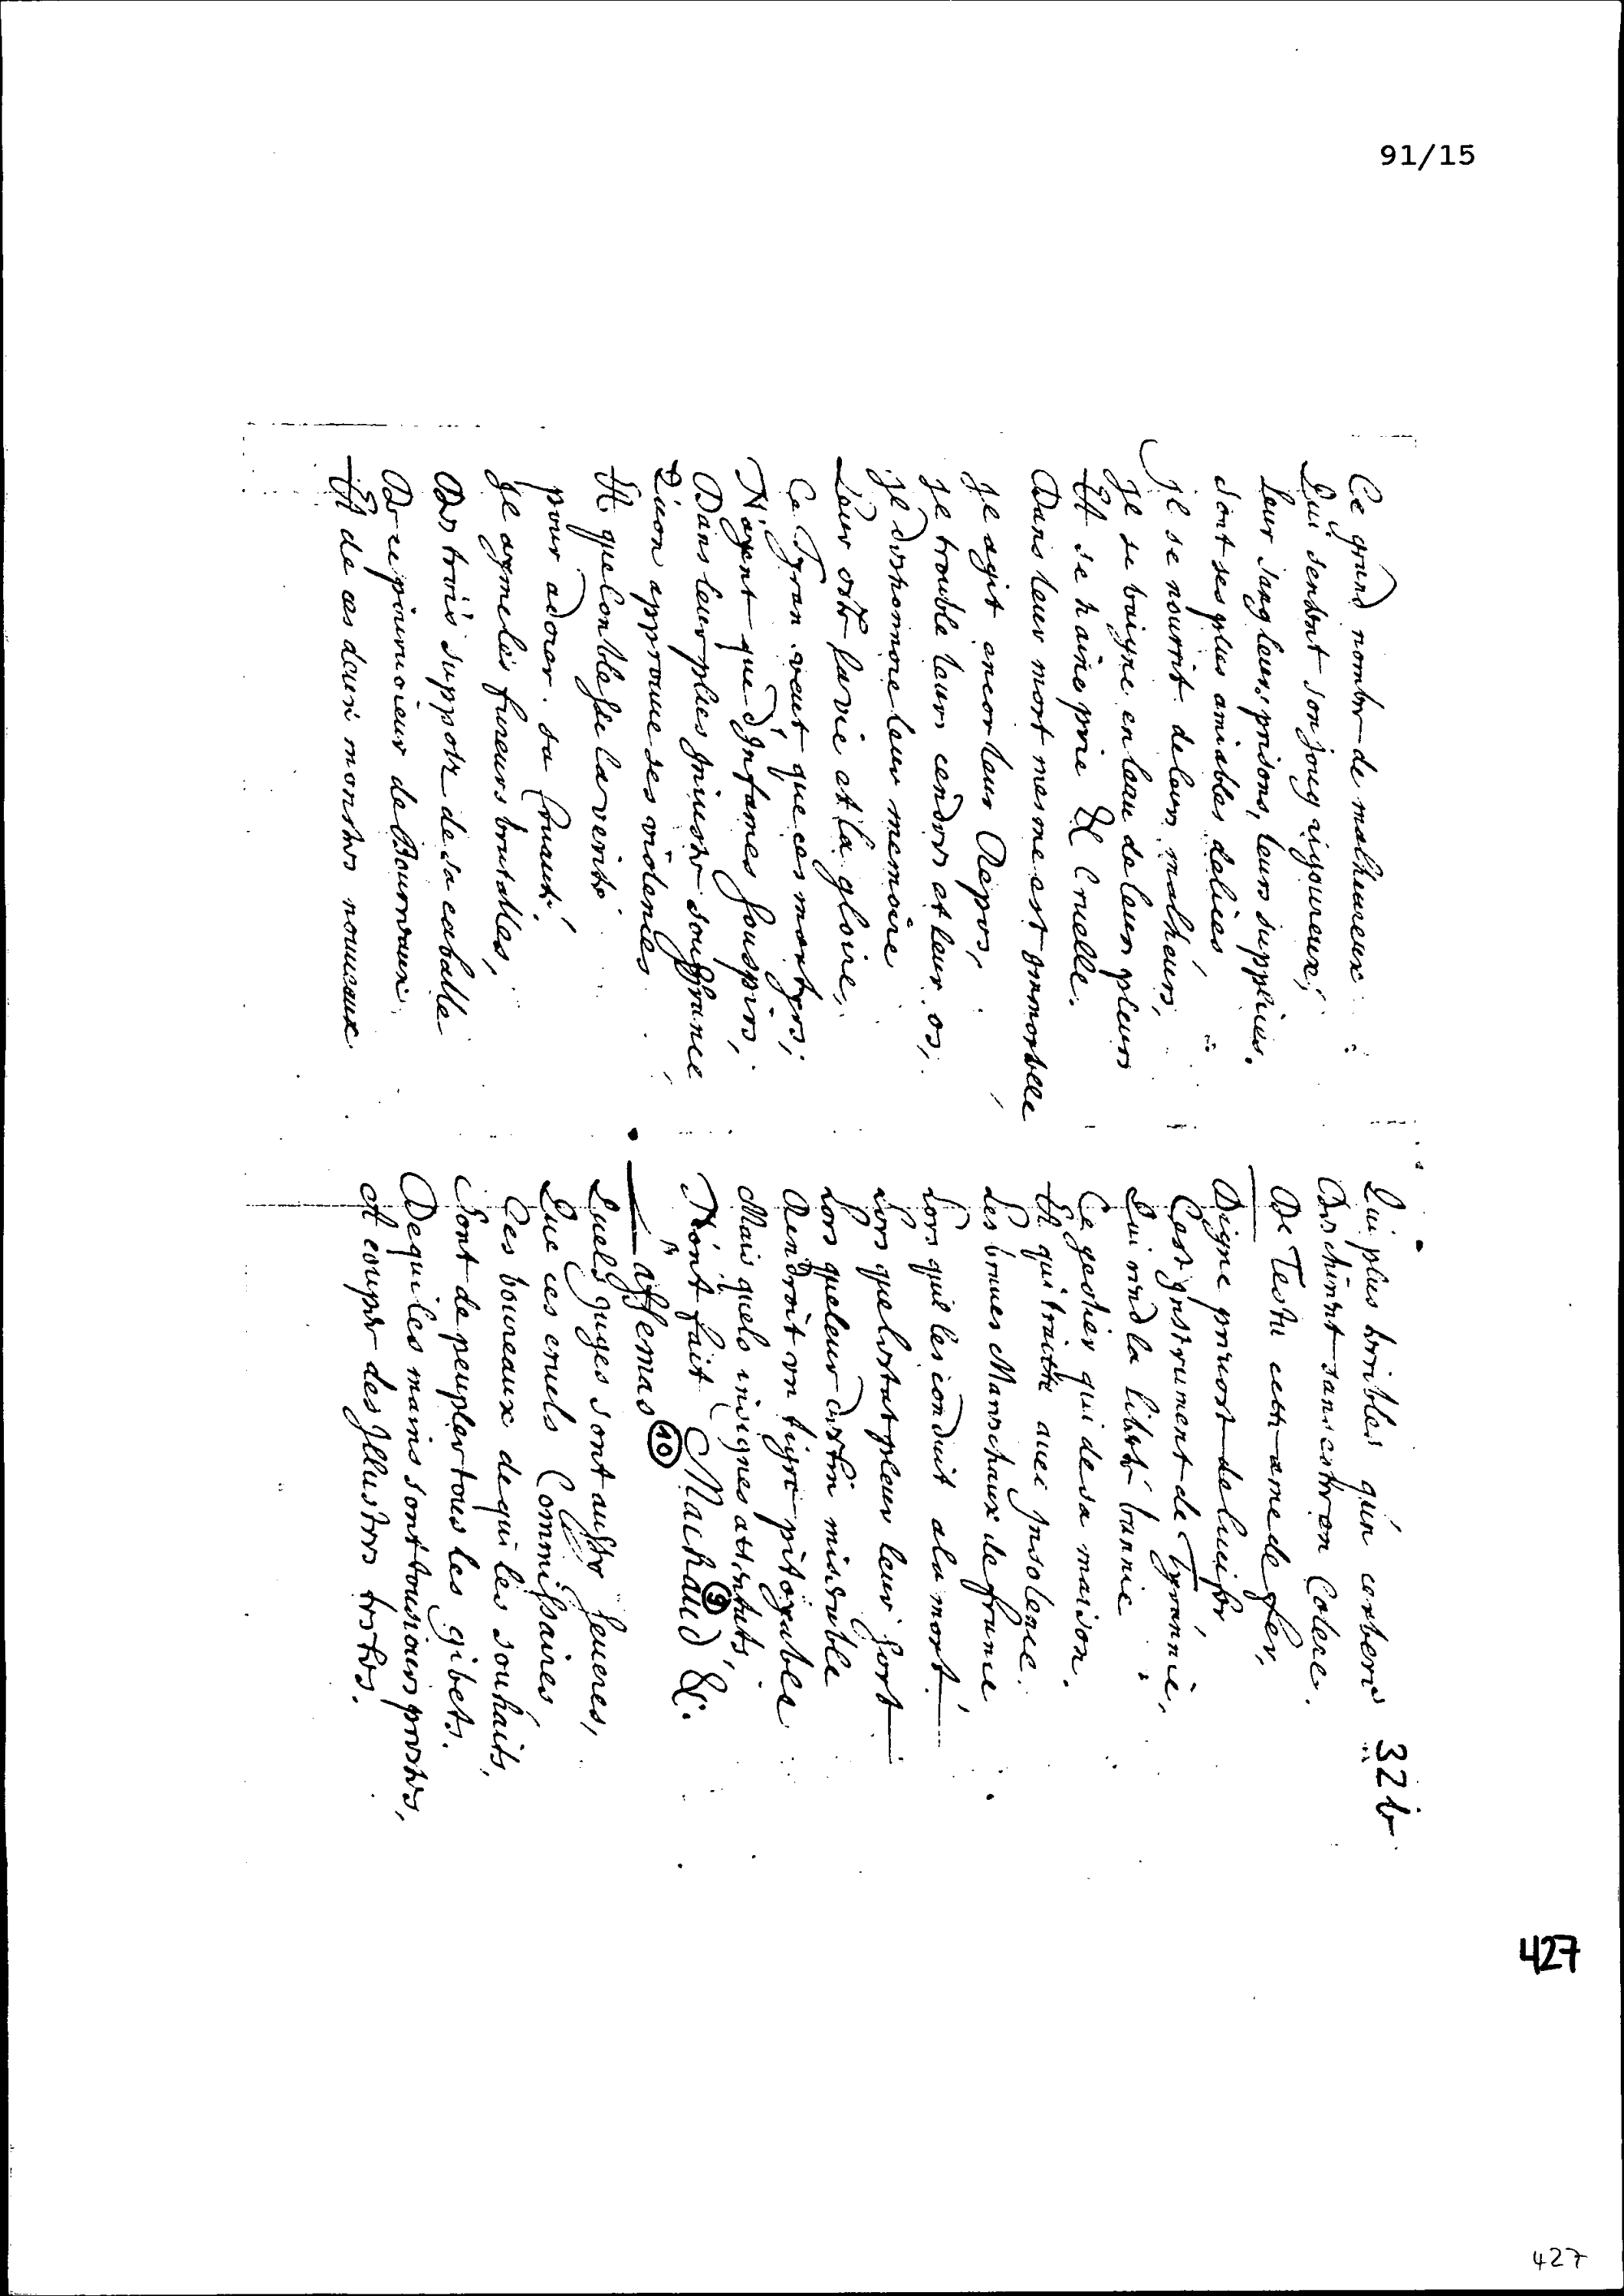 91/15
Ce grand nombre de malheureux
Qui sentent son joug rigoureux,
Leur sang leurs prisons, leurs supplices.
Sont ses plus amiables delices
Il se nourrit de leurs malheurs,
Il se baigne en leau de leurs pleurs
Et se haine prie & Cruelle.
Dans leur mort mesme est immortelle
Il agit encor leur Repos,
Il trouble leurs cendres et leur os,
Il deshonnore leur memoire
Leur oste la vie et la gloire,
Ce Tyran veut que ces martyrs,
N'ayent que d'Infames souspirs,
Dans leur plus Iniuste souffrance
Qu'on approuue ses violences
Et que lon blesse la verité
pour adorer sa Cruauté,
Il ayme les fureurs brutalles,
Des trois suppots de sa caballe
De ce pouruoieur de Bourreaux
Et de ces deux monstres nouueaux
32 b
Qui plus terribles qu'un cerbere
Deschirent sans estre en Colere.
De Testu cette ame de fer,
Digne preuost de lucifer,
Cest Instrument de Tyrannie,
Qui rend la liberté bannie
Ce geolier qui de sa maison.
Et qui traitte auec Insolence
Les braues Mareschaux de france
Lors quil les conduit a la mort
Lors que lestat pleure leur sort
Lors que leur destin miserable
Rendroit vn tigre pitoyable
Mais quels insignes attentats,
N'ont fait Machaud 9 &.
affemas 10
Quels Juges sont aussy seueres,
Que ces cruels Commissaires
Ces boureaux de qui les souhaits,
Sont de peupler tous les gibets.
De qui les mains sont tousiours prestes,
et couper des Illustres testes.
427
427